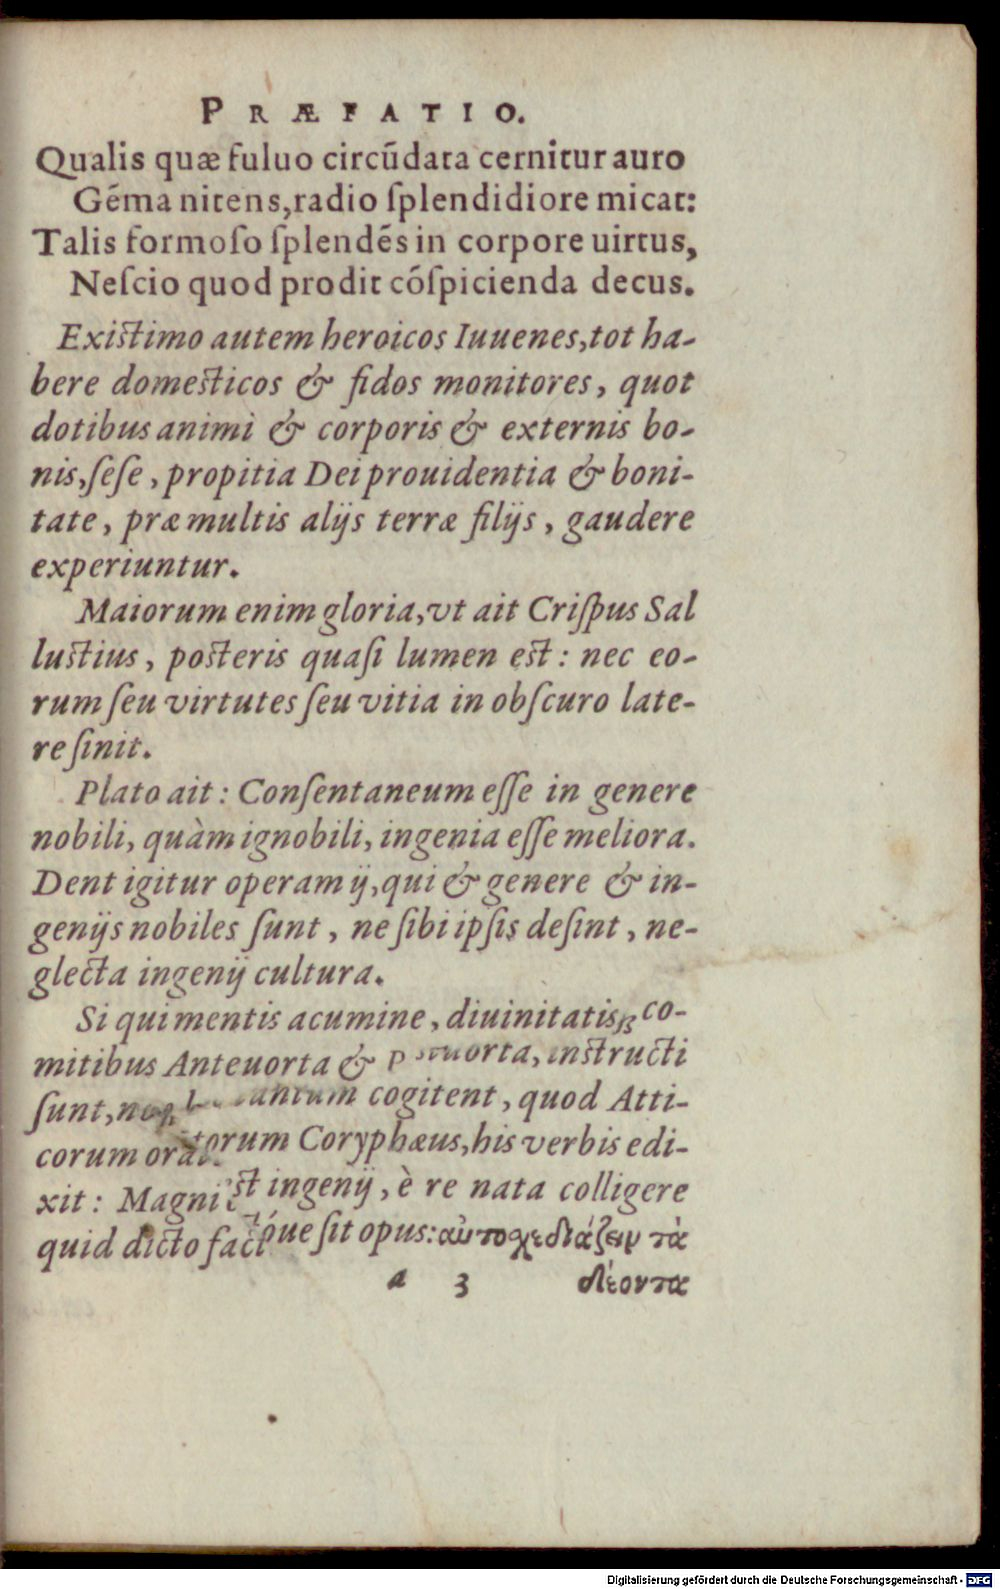 PRÆFATIO.
Qualis quæ fuluo circũdata cernitur auro
Gẽma nitens, radio ſplendidiore micat:
Talis formoſo ſplendẽs in corpore uirtus,
Neſcio quod prodit cõſpicienda decus.
Exiſtimo autem heroicos Iuuenes, tot ha-
bere domeſticos & fidos monitores, quot
dotibus animi & corporis & externis bo-
nis, ſeſe, propitia Dei prouidentia & boni-
tate, præ multis alijs terræ filijs, gaudere
experiuntur.
Maiorum enim gloria, vt ait Criſpus Sal
luſtius, poſteris quaſi lumen eſt: nec eo-
rum ſeu virtutes ſeu vitia in obſcuro late-
re ſinit.
Plato ait: Conſentaneum eſſe in genere
nobili, quàm ignobili, ingenia eſſe meliora.
Dent igitur operam ij, qui & genere & in-
genijs nobiles ſunt, ne ſibi ipſis deſint, ne-
glecta ingenij cultura.
Si qui mentis acumine, diuinitatisꝗ́; co-
mitibus Anteuorta & Poſtuorta, inſtructi
ſunt, cogitent, quod Atti-
corum oratorum Coryphæus, his verbis edi-
xit: Magni eſt ingenij, è re nata colligere
quid dicto factóue ſit opus: αὐτοσχεδιάζειν τὰ
a 3 δέοντα
Digitalisierung gefördert durch die Deutsche Forschungsgemeinschaft - DFG